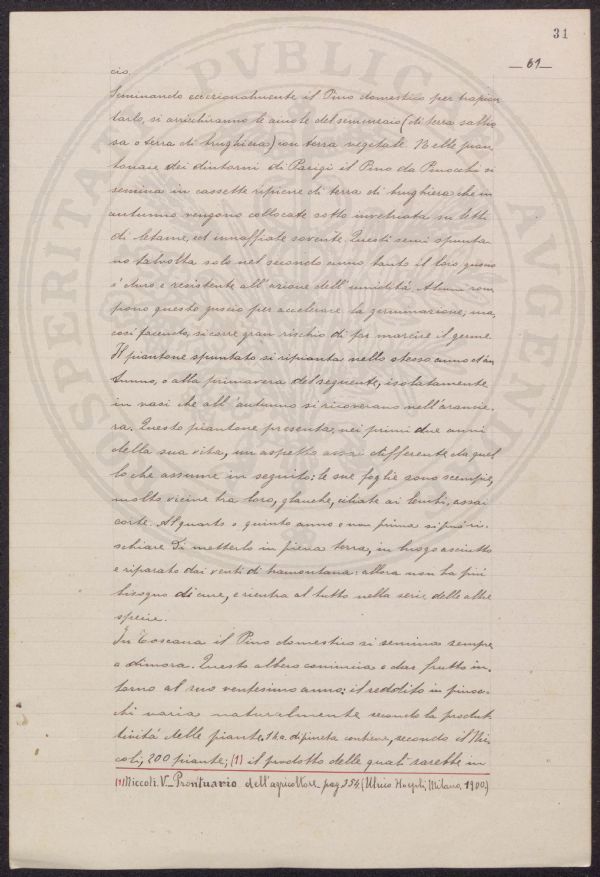 31
61
cio.
Seminando eccezionalmente il Pino domestico per trapian
tarlo, si arricchiranno le aiuole del semenzaio (di terra sabbio
sa o terra di brughiera) con terra vegetale. Nelle pian
tonaie dei dintorni di Parigi il Pino da Pinocchi si
semina in cassette ripiene di terra di brughiera che in
autunno vengono collocate sotto invetriata su letti
di letame, ed innaffiate sovente. Questi semi spunta-
no talvolta solo nel secondo anno tanto il loro guscio
è duro e resistente all'azione dell'umidità. Alcuni rom
pono questo guscio per accelerare la germinazione; ma,
così facendo, si corre gran rischio di far marcire il germe.
Il piantone spuntato si ripianta nello stesso anno al'au
tunno, o alla primavera del seguente, isolatamente
in vasi che all'autunno si ricoverano nell'arancie-
ra. Questo piantone presenta, nei primi due anni
della sua vita, un aspetto assai differente da quel
lo che assume in seguito: le sue foglie sono scempie,
molto vicine tra loro, glauche, ciliate ai lembi, assai
corte. Al quarto o quinto anno e non prima si può ri-
schiare di metterlo in piena terra, in luogo asciutto
e riparato dai venti di tramontana: allora non ha più
bisogno di cure, e rientra al tutto nella serie delle altre
specie.
In Toscana il Pino domestico si semina sempre
a dimora. Quest'albero comincia a dar frutto in-
torno al suo ventesimo anno: il reddito in pinoc-
chi varia naturalmente secondo la produt-
tività delle piante. 1 ha. di pineta contiene, secondo il Nic
coli, 200 piante; (1) il prodotto delle quali sarebbe in
(1) Niccoli. V_ Prontuario dell'agricoltore_ pag. 254. (Ulrico Hoepli, Milano, 1900.)
PROSPERITATI PVBLICAE AVGENDAE